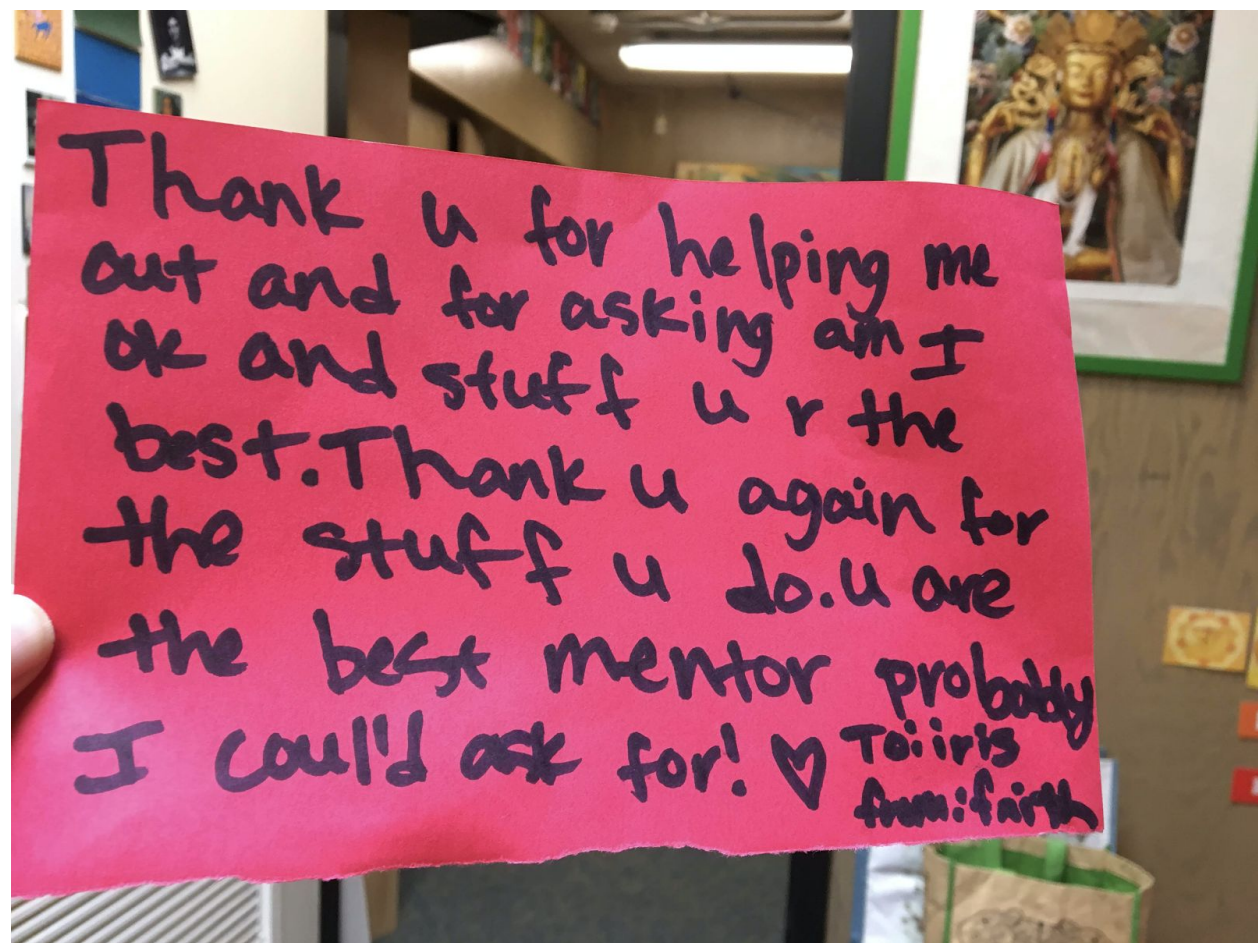 Thank u for helping me
out and for asking am I
ok and stuff u r the
best. Thank u again for
the stuff u do. u are
the best mentor probably
I coul'd ask for! ♡
To: iris
from: faith